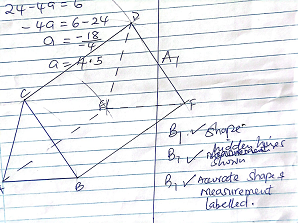 24-4a = 6
-4a = 6-24
a = -18
-4
a = 4.5
D
A1
C
F
B
B1 ✓ Shape
B1 ✓ hidden lines
shown
B1 ✓ Accurate Shape &
measurement
labelled.